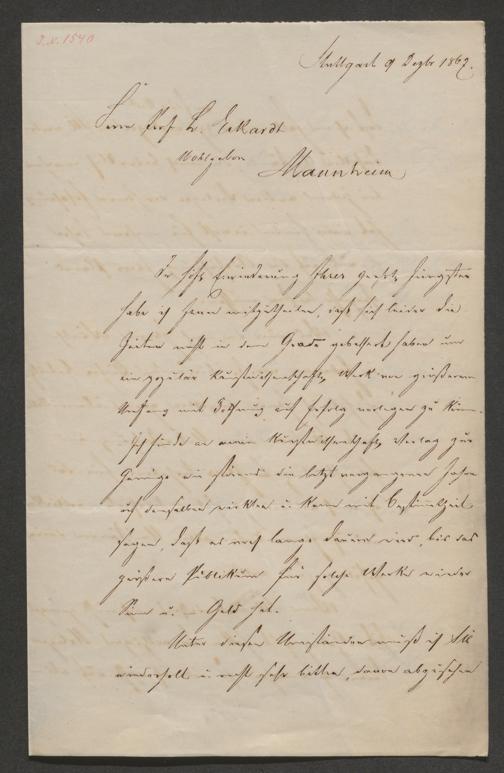 J.N. 1540
Stuttgart 9 Dezbr 1867.
Herrn Prof. L. Eckardt
Wohlgeboren
Mannheim
In höfl. Erwiderung Ihres geehrten Jüngsten
habe ich Ihnen mitzutheilen, daß sich leider die
Zeiten nicht in dem Grade gebessert haben um
ein populär kunstwissenschaftl. Werk von größerem
Umfang mit Hoffnung auf Erfolg verlegen zu können.
Ich finde an meinem kunstwissenschaftl. Verlag zur
Genüge wie störend die letzt vergangenen Jahre
auf denselben wirkten u. kann mit Bestimmtheit
sagen, daß es noch lange dauern wird, bis das
größere Publikum für solche Werke wieder
Sinn u. Geld hat.
Unter diesen Umständen muß ich Sie
wiederholt u. recht sehr bitten, davon abzusehen